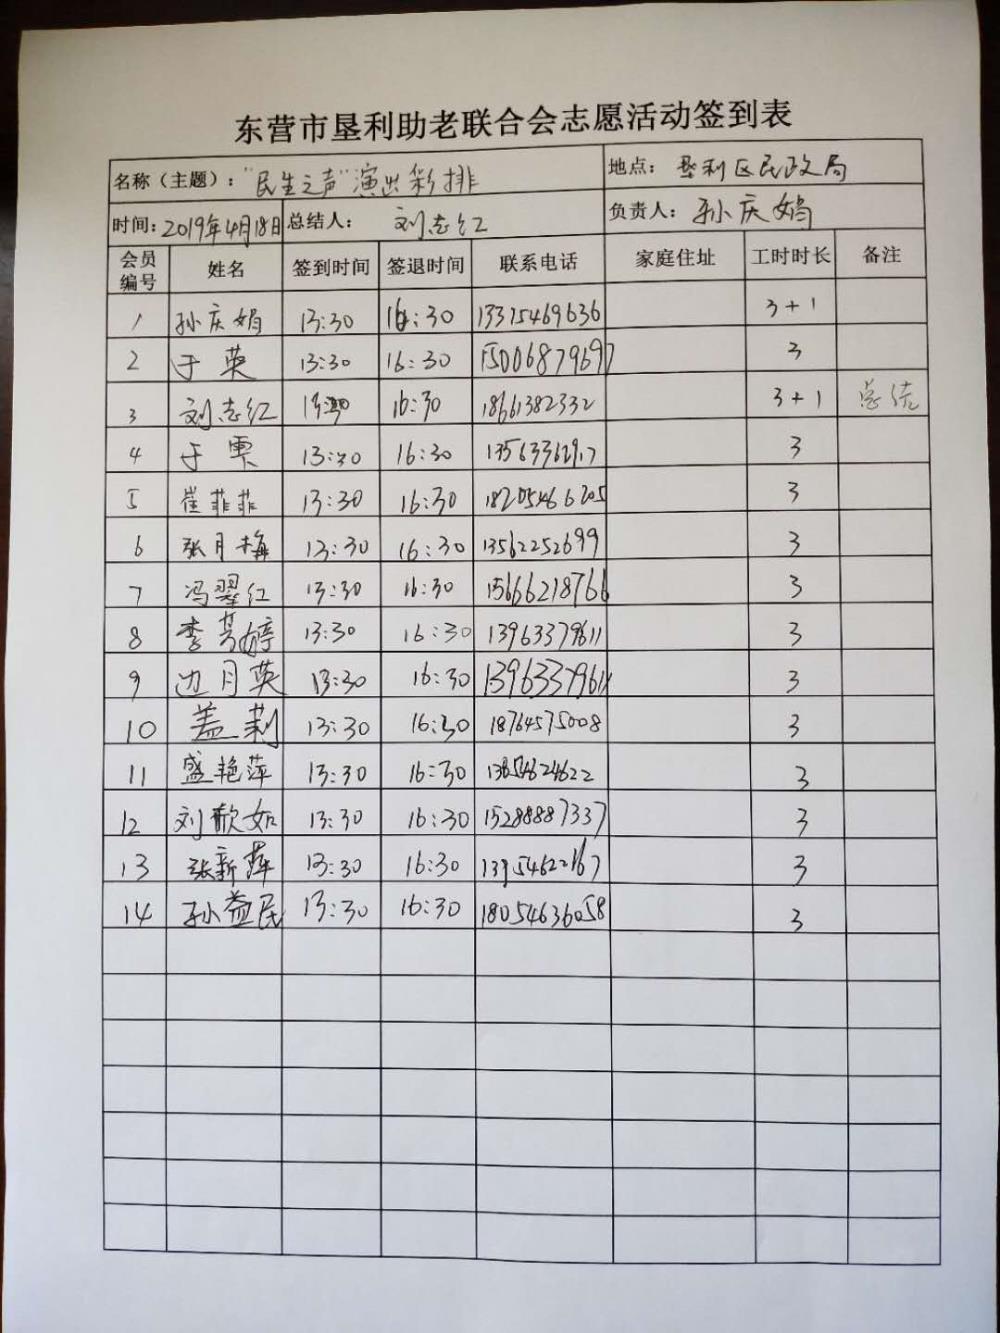 东营市垦利助老联合会志愿活动签到表
名称（主题）：“民生之声”演出彩排 地点：垦利区民政局
时间：2019年4月18日 总结人：刘志红 负责人：孙庆娟
会员编号 姓名 签到时间 签退时间 联系电话 家庭住址 工时时长 备注
1 孙庆娟 13:30 16:30 13375469636 3+1
2 于英 13:30 16:30 15006879697 3
3 刘志红 13:30 16:30 18661382332 3+1 总结
4 于雯 13:30 16:30 3
5 崔菲菲 13:30 16:30 18205466205 3
6 张月梅 13:30 16:30 13562252699 3
7 冯翠红 13:30 16:30 15666218766 3
8 李芳婷 13:30 16:30 13963379611 3
9 边月英 13:30 16:30 3
10 盖莉 13:30 16:30 18764575008 3
11 盛艳萍 13:30 16:30 13854624622 3
12 刘歆如 13:30 16:30 15288887337 3
13 张新萍 13:30 16:30 13954622167 3
14 孙益民 13:30 16:30 18054636058 3